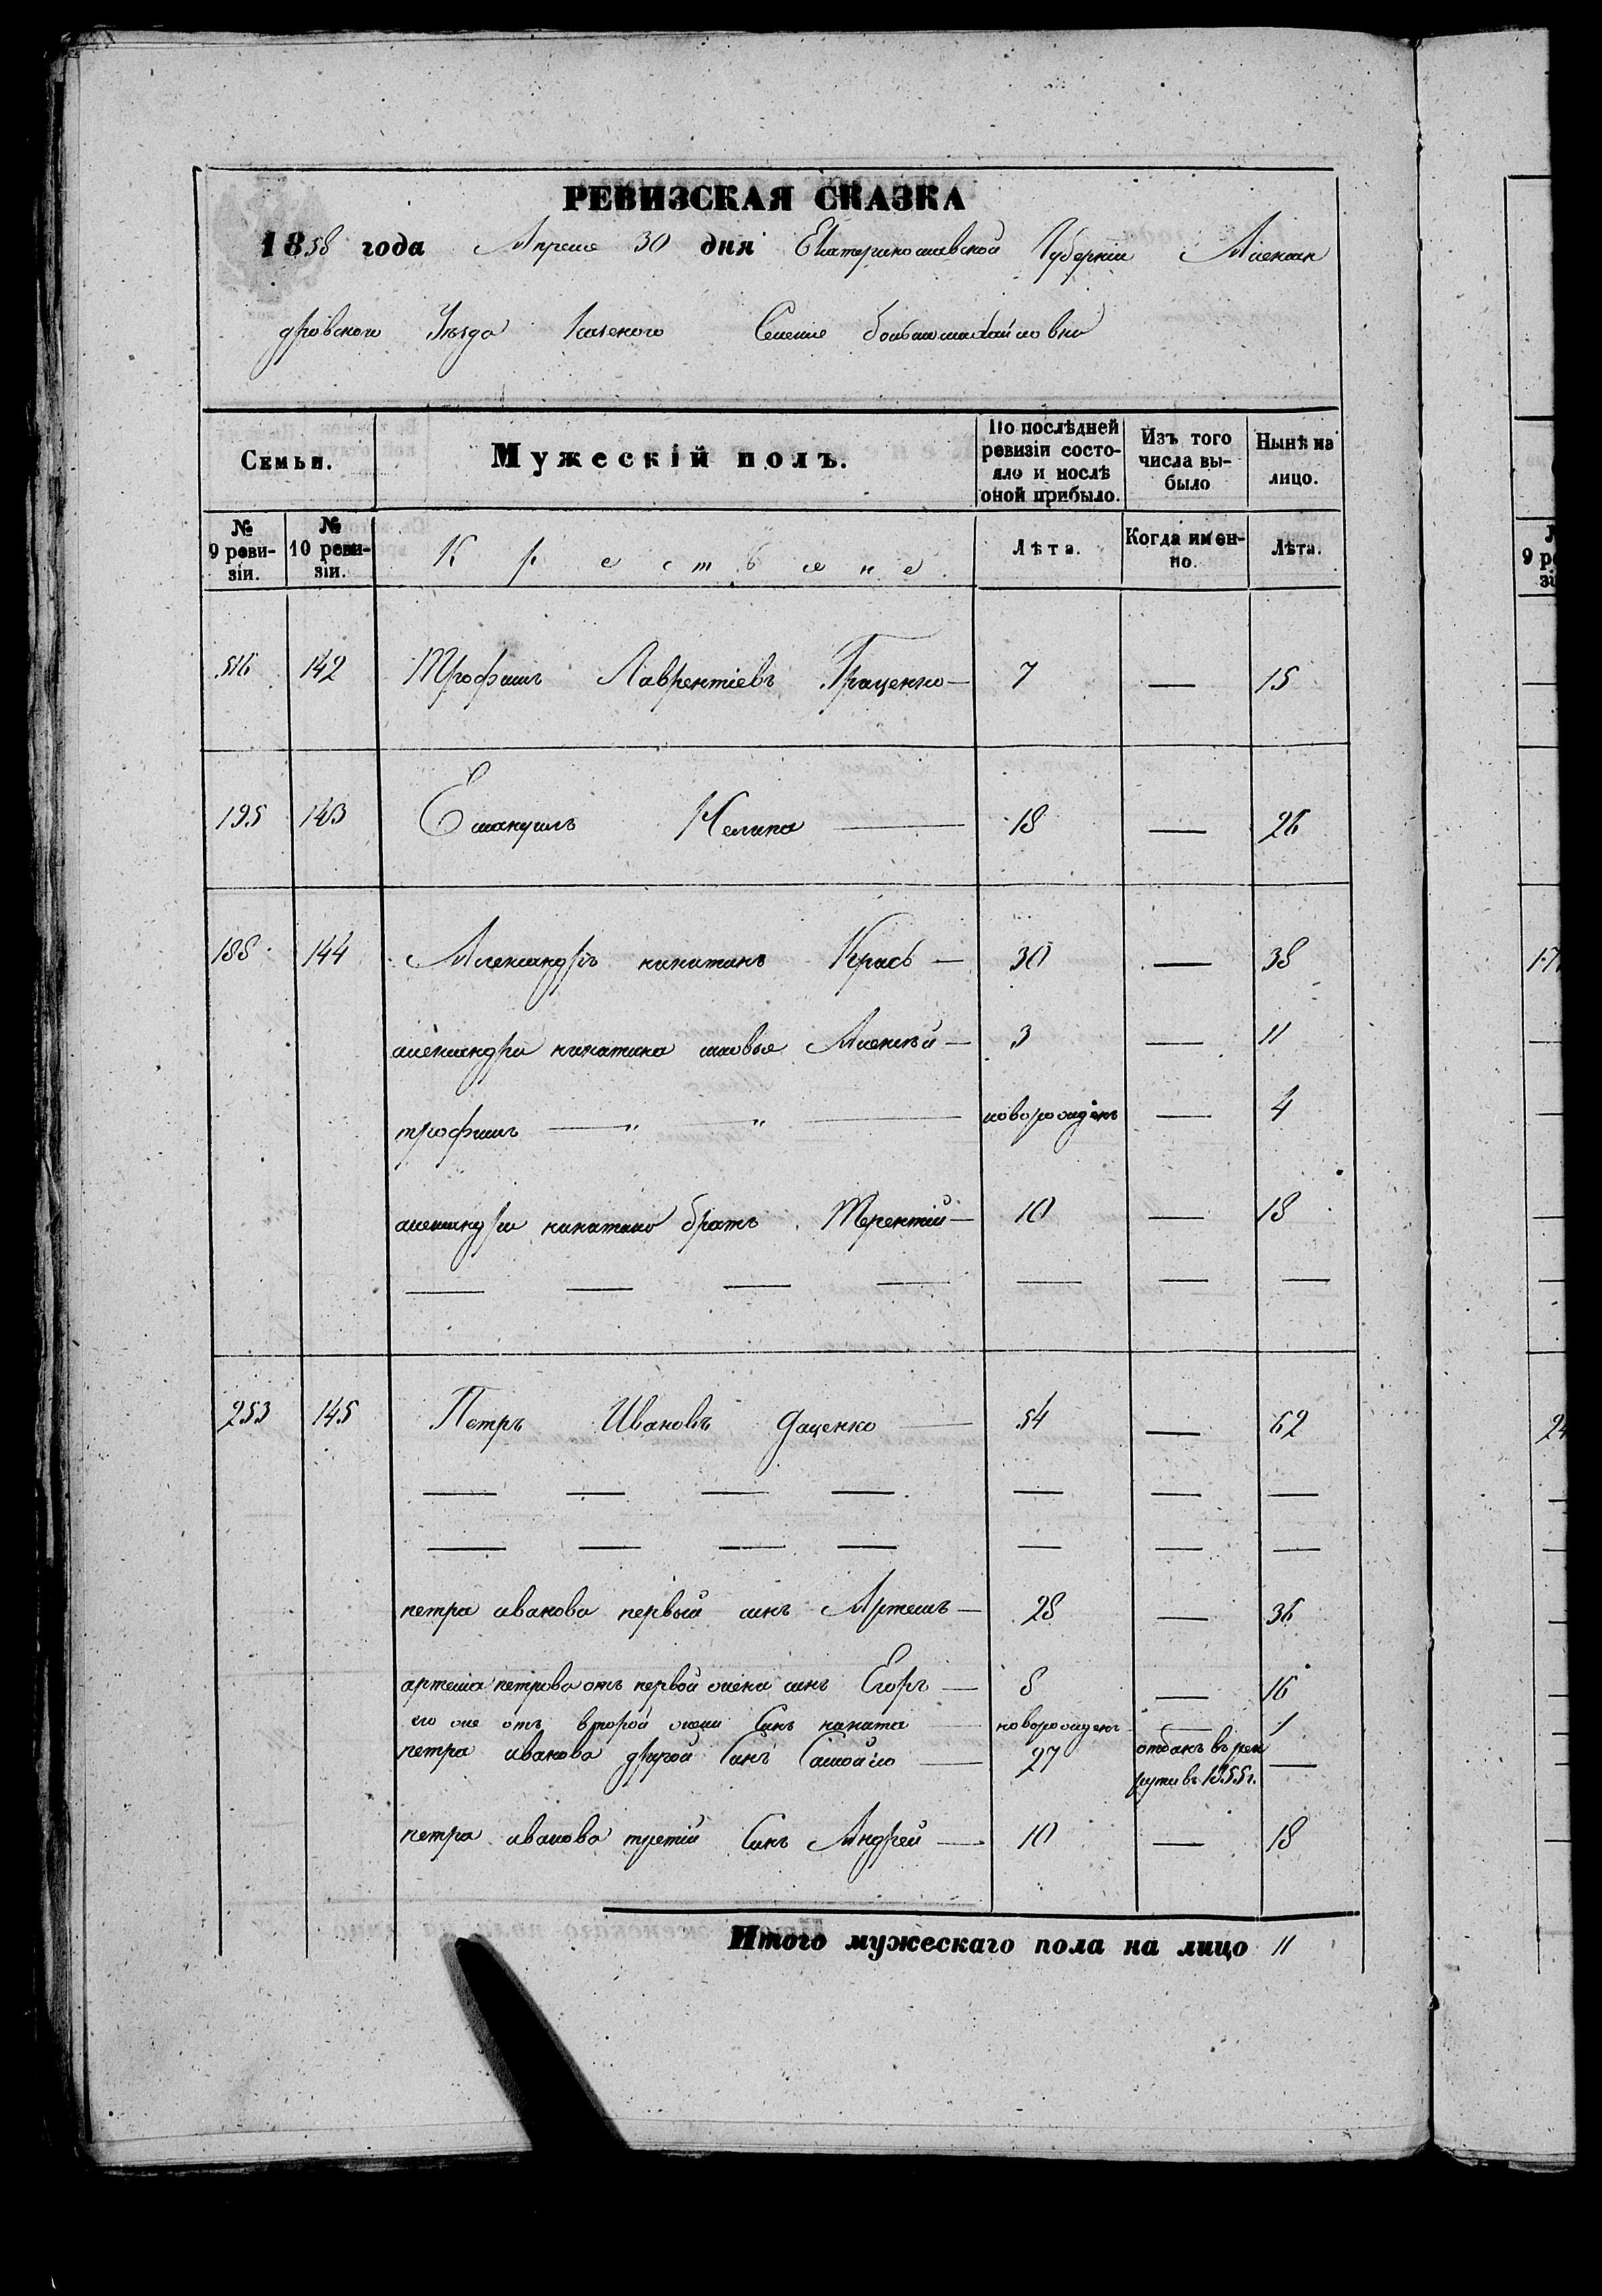 РЕВИЗСКАЯ СКАЗКА
1858 года Апреля 30 дня Екатеринославской Губерніи Алексан
дровского Уезда Казеного Селения
Семьи.
Мужескій полъ.
По послѣдней ревизіи состояло и послѣ оной прибыло.
Изъ того числа выбыло
Нынѣ на лицо.
№ 9 ревизіи.
№ 10 ревизіи.
Крестьяне.
Лѣта.
Когда именно.
Лѣта.
516 142 Трофимъ Лаврентіевъ Граценко — 7 — 15
195 143 Емануилъ — 18 — 26
188 144 Александръ Карась — 30 — 38
александра сыновья Алексѣй — 3 — 11
трофимъ — " — " — новорожденъ — 4
александра братъ Терентій — 10 — 18
— — — — — — —
253 145 Петръ Ивановъ Даценко — 54 — 62
— — — — — — —
— — — — — — —
петра иванова первый синъ Артемъ — 28 — 36
артема петрова отъ первой жени синъ Егоръ — 8 — 16
его же отъ второй жени Синъ никита — новорожденъ — 1
петра иванова другой Синъ Самойло — 27 отданъ въ рек
рути въ 1855 г. —
петра иванова третій Синъ Андрей — 10 — 18
Итого мужескаго пола на лицо 11
9 ре